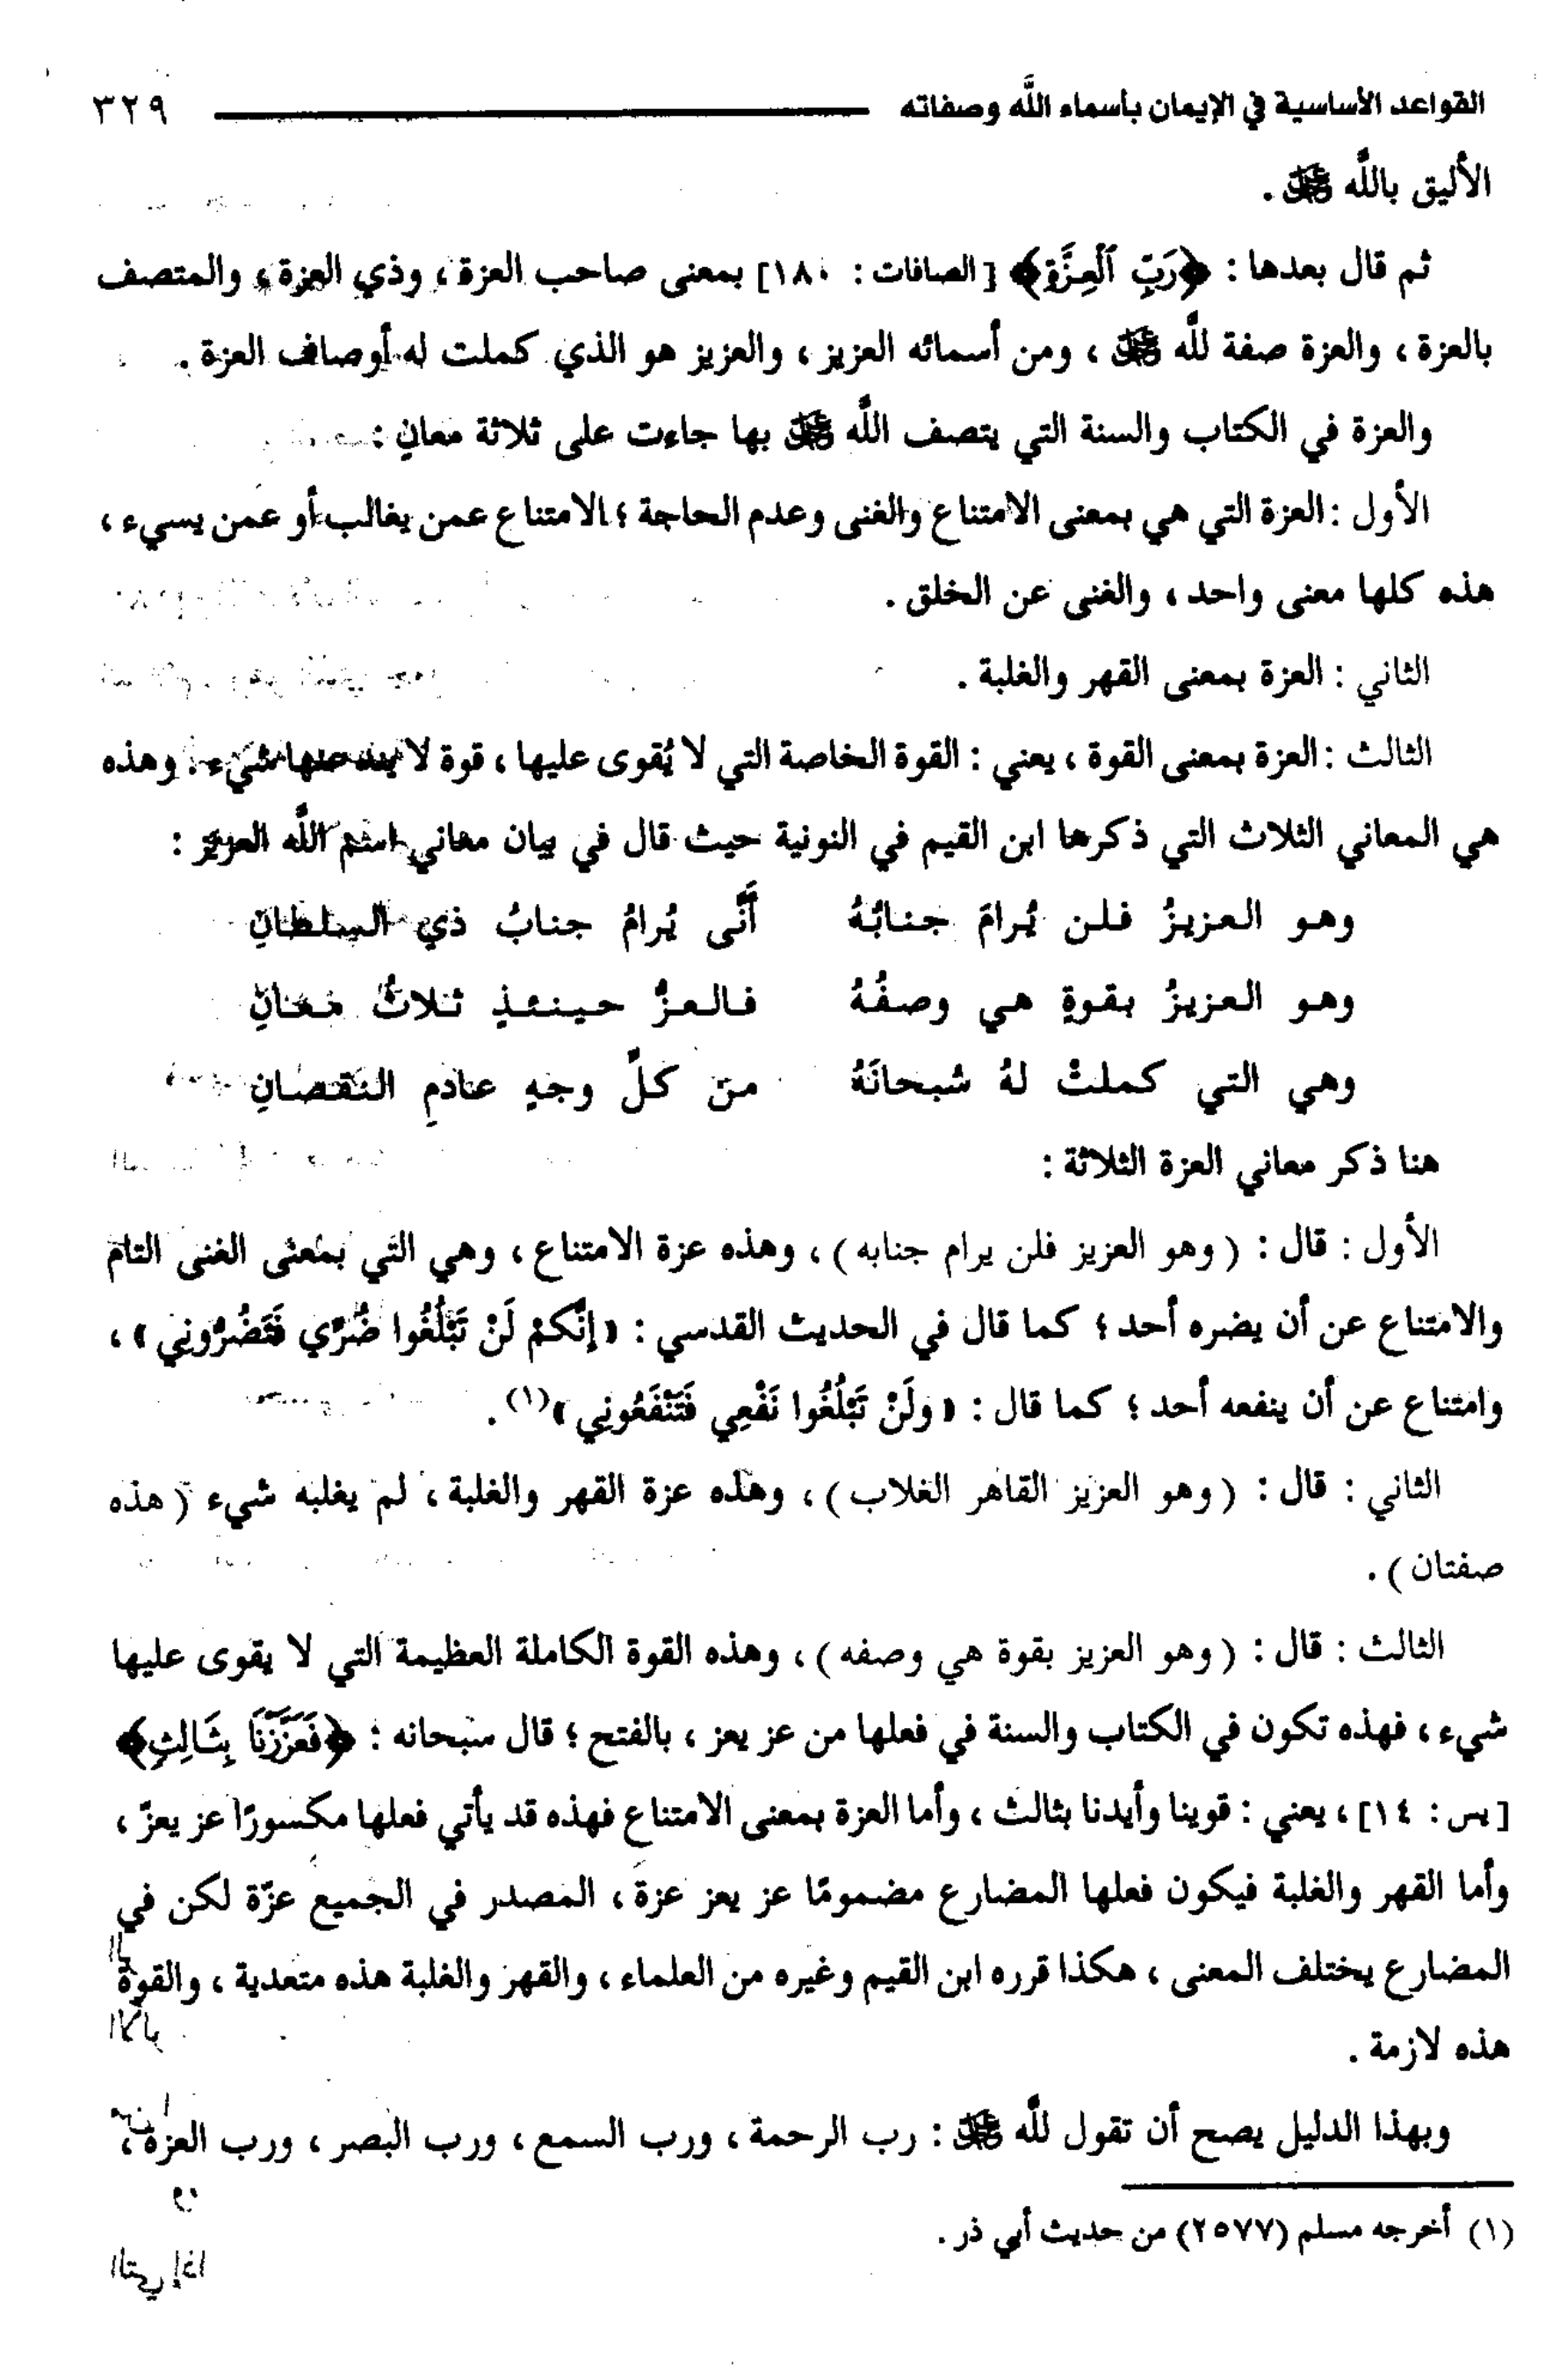 القواعد الأساسية في الإيمان بأسماء اللَّه وصفاته ٣٢٩
الأليق باللَّه ﷻ .
ثم قال بعدها : ﴿رَبِّ ٱلْعِزَّةِ﴾ [الصافات : ١٨٠] بمعنى صاحب العزة ، وذي العزة ، والمتصف
بالعزة ، والعزة صفة للَّه ﷻ ، ومن أسمائه العزيز ، والعزيز هو الذي كملت له أوصاف العزة .
والعزة في الكتاب والسنة التي يتصف اللَّه ﷻ بها جاءت على ثلاثة معانٍ :
الأول : العزة التي هي بمعنى الامتناع والغنى وعدم الحاجة ؛ الامتناع عمن يغالب أو عمن يسيء ،
هذه كلها معنى واحد ، والغنى عن الخلق .
الثاني : العزة بمعنى القهر والغلبة .
الثالث : العزة بمعنى القوة ، يعني : القوة الخاصة التي لا يُقوى عليها ، قوة لا شيء . وهذه
هي المعاني الثلاث التي ذكرها ابن القيم في النونية حيث قال في بيان معاني اسم اللَّه العزيز :
وهو العزيزُ فلن يُرامَ جنابُهُ أَنَّى يُرامُ جنابُ ذي السلطانِ
وهو العزيزُ بقوةٍ هي وصفُهُ فالعزُّ حينئذٍ ثلاثُ مَعَانِ
وهي التي كملتْ لهُ سُبحانَهُ من كلِّ وجهٍ عادمِ النقصانِ
هنا ذكر معاني العزة الثلاثة :
الأول : قال : ( وهو العزيز فلن يرام جنابه ) ، وهذه عزة الامتناع ، وهي التي بمعنى الغنى التام
والامتناع عن أن يضره أحد ؛ كما قال في الحديث القدسي : « إنَّكمْ لَنْ تَبْلُغُوا ضُرِّي فَتَضُرُّونِي » ،
وامتناع عن أن ينفعه أحد ؛ كما قال : « ولَنْ تَبْلُغُوا نَفْعِي فَتَنْفَعُونِي »(١) .
الثاني : قال : ( وهو العزيز القاهر الغلاب ) ، وهذه عزة القهر والغلبة ، لم يغلبه شيء ( هذه
صفتان ) .
الثالث : قال : ( وهو العزيز بقوة هي وصفه ) ، وهذه القوة الكاملة العظيمة التي لا يقوى عليها
شيء ، فهذه تكون في الكتاب والسنة في فعلها من عز يعز ، بالفتح ؛ قال سبحانه : ﴿فَعَزَّزْنَا بِثَالِثٍ﴾
[يس : ١٤] ، يعني : قوينا وأيدنا بثالث ، وأما العزة بمعنى الامتناع فهذه قد يأتي فعلها مكسورًا عز يعزّ ،
وأما القهر والغلبة فيكون فعلها المضارع مضمومًا عز يعز عزة ، المصدر في الجميع عزّة لكن في
المضارع يختلف المعنى ، هكذا قرره ابن القيم وغيره من العلماء ، والقهر والغلبة هذه متعدية ، والقوة
هذه لازمة .
وبهذا الدليل يصح أن تقول للَّه ﷻ : رب الرحمة ، ورب السمع ، ورب البصر ، ورب العزة ،
(١) أخرجه مسلم (٢٥٧٧) من حديث أبي ذر .